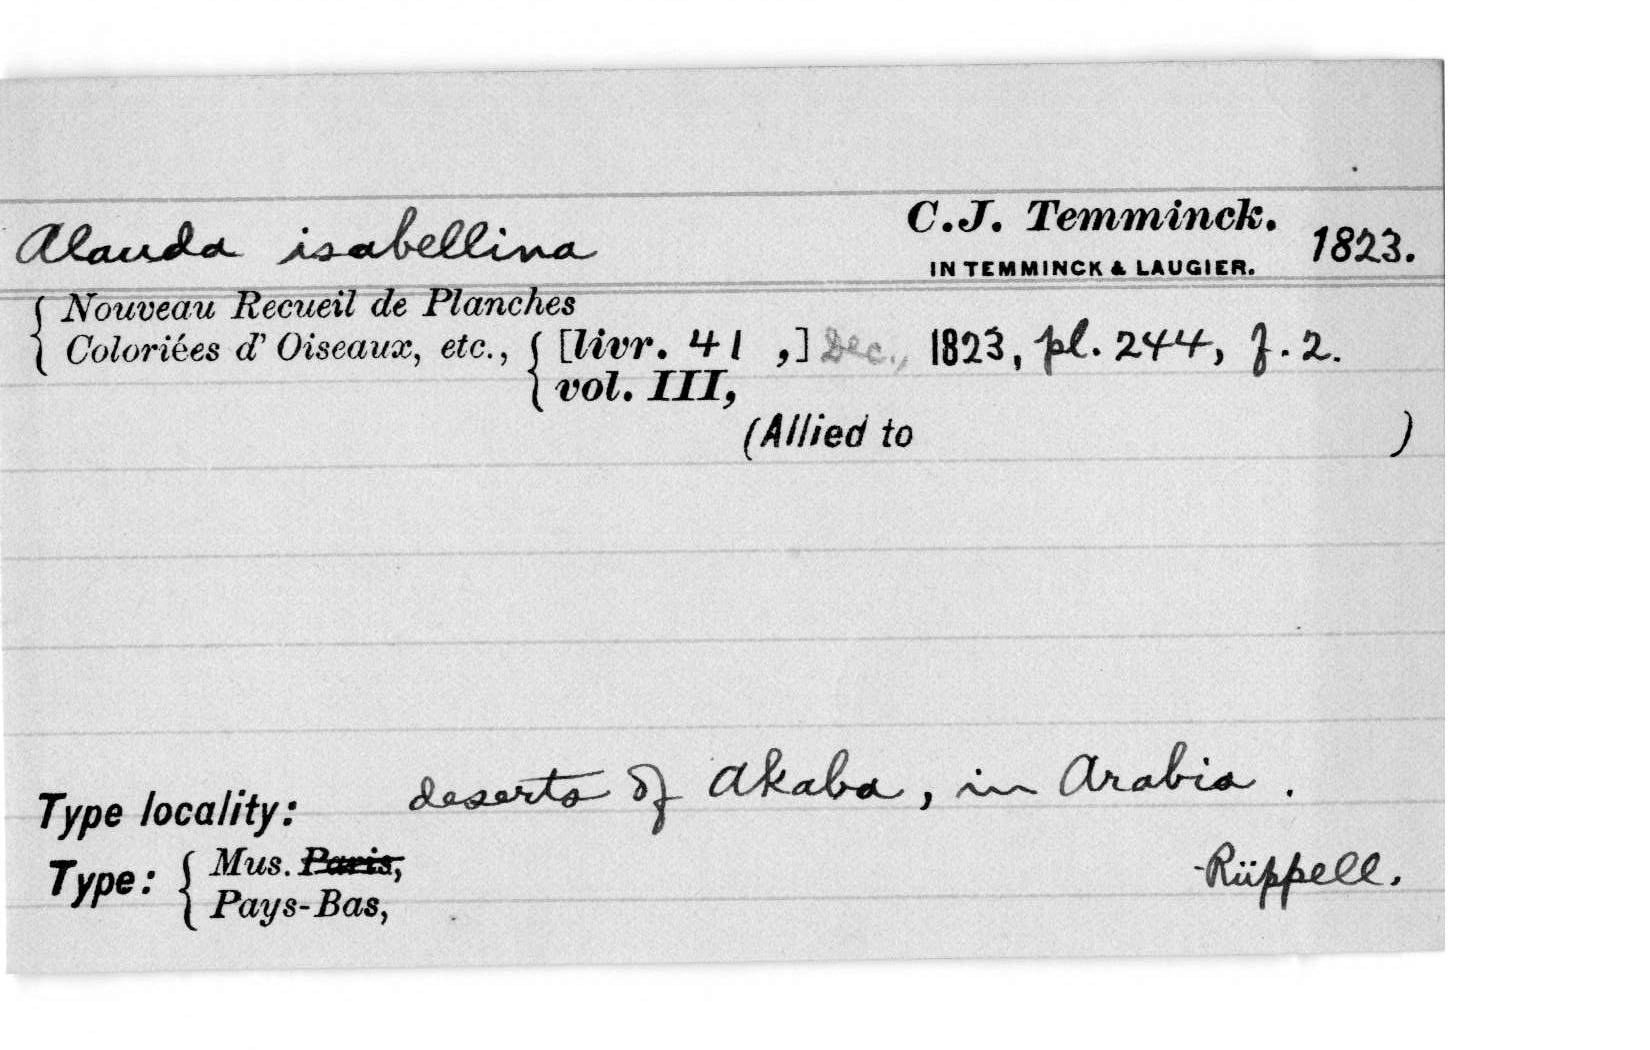 Alauda isabellina C.J. Temminck. 1823.
IN TEMMINCK & LAUGIER.
Nouveau Recueil de Planches
Coloriées d' Oiseaux, etc., [livr. 41 ,] Dec., 1823, pl. 244, f. 2.
vol. III,
(Allied to )
Type locality: deserts of Akaba, in Arabia.
Type: Mus. Paris, Rüppell.
Pays-Bas,